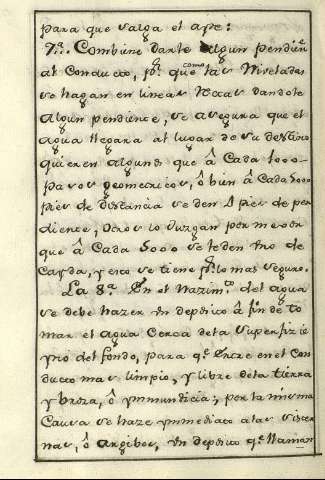 para que salga el ayre:
7.ª Combiene darle algun pendien.e
al Conducto, p.r que como las Niveladas
se hagan en lineas Rectas dandole
algun pendiente, se asegura que el
agua llegara al lugar de su destino
quieren algunos que â Cada 1000
pasos geometricos, ô bien â Cada 5000
pies de distancia se den 2 pies de pen
diente, otros lo Juzgan por mexor
que â Cada 5000 se le den uno de
Cayda, y esto se tiene p.r lo mas seguro.
La 8.ª En el Nazim.to del agua
se debe hazer un deposito â fin de to
mar el agua Cerca de la superfizie
y no del fondo, para q.e Entre en el Con
ducto mas limpio, y libre de la tierra
y broza, ô ynmundicia; por la misma
Causa se haze ynmediato a las Cister
nas, ô Argibes, un deposito q.e llaman